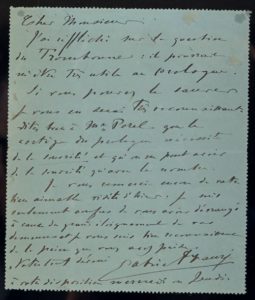 Cher Monsieur
J'ai réfléchi sur la question
du Trombonne : il pourrait
m'être très utile au prologue.
Si vous pouvez le sauver
je vous en serai très reconnaissant.
Dites bien à Mr Porel que le
cortège du prologue nécessite
de la sonorité et qu'on ne peut avoir
de la sonorité qu'avec le nombre.
Je vous remercie encore de votre
bien aimable visite d'hier. Je suis
seulement confus de vous avoir dérangé
à cause du grand éloignement de ma
demeure et je vous suis bien reconnaissant
de la peine que vous avez prise.
Votre tout dévoué
Gabriel Fauré
à votre disposition mercredi ou jeudi